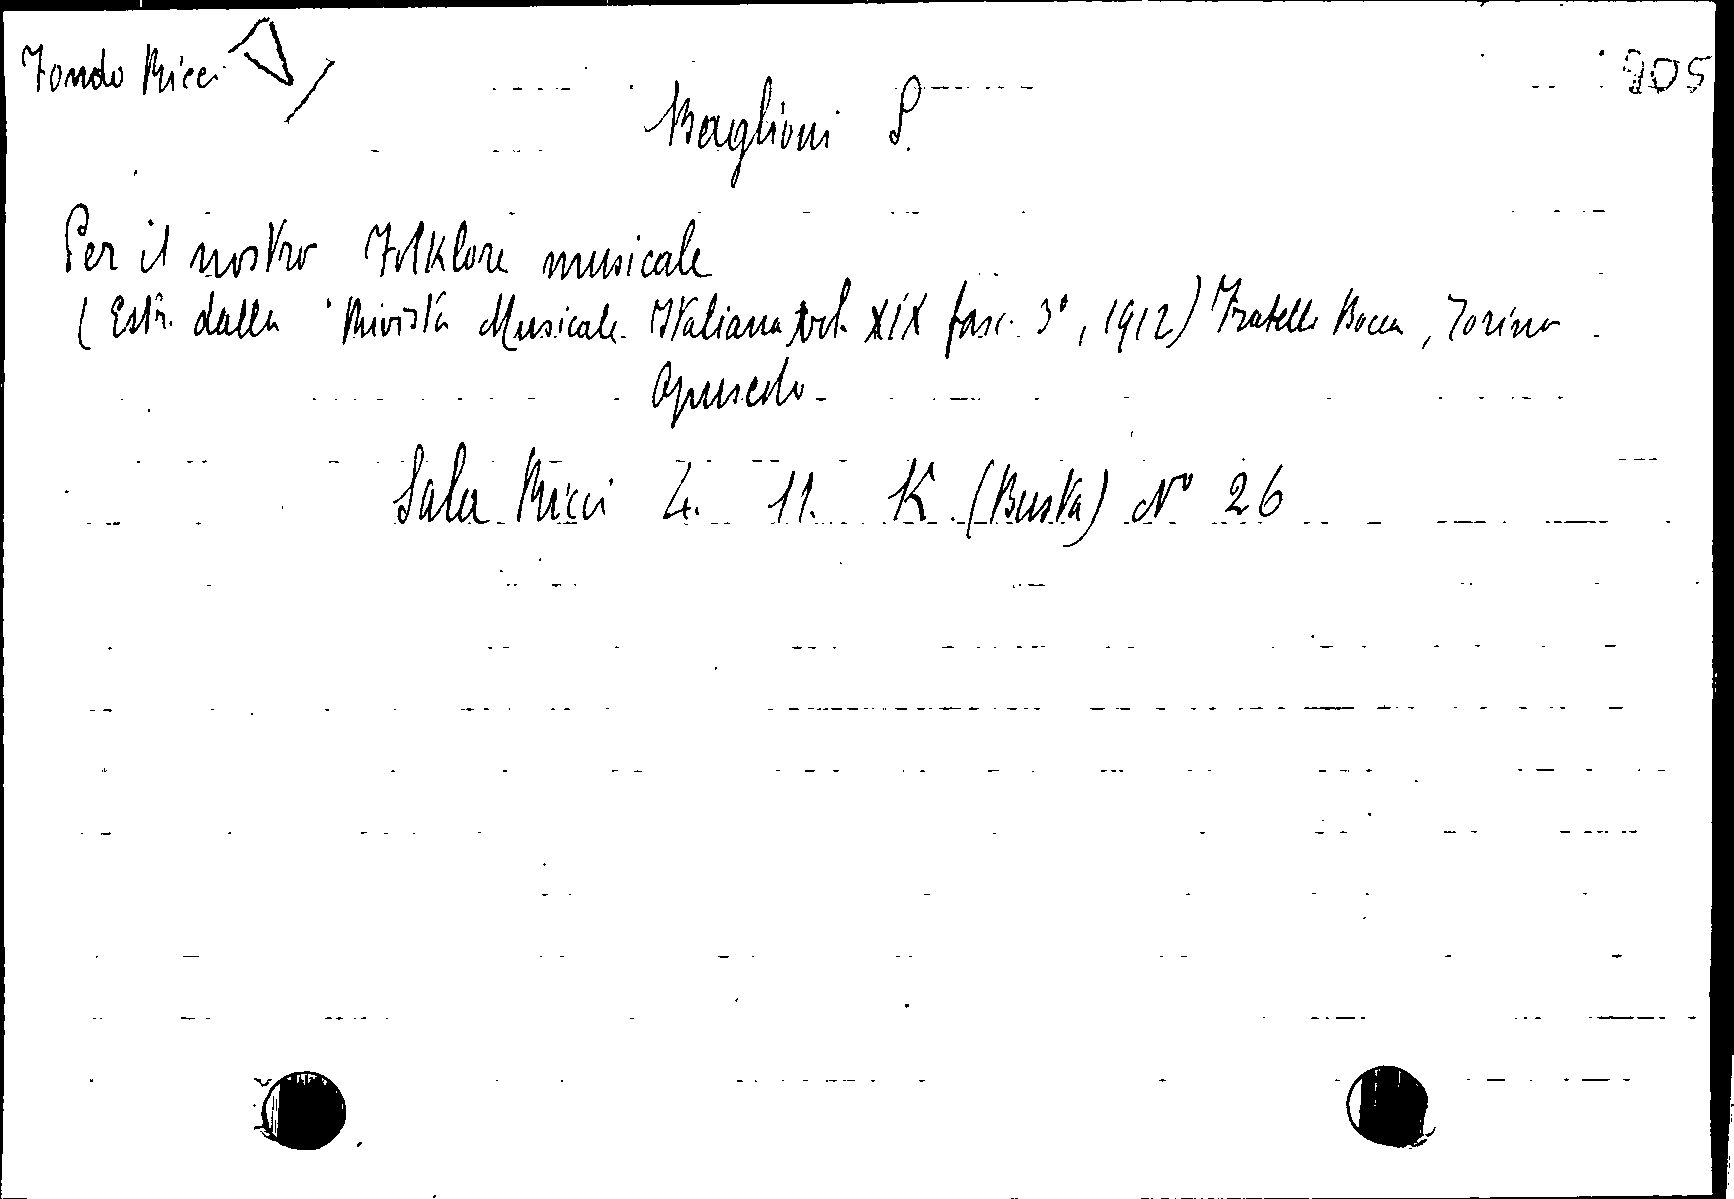 Fondo Ricci
205
Baglioni S.
Per il nostro Folklore musicale
(Estr. dalla Rivista Musicale Italiana vol. XIX fasc. 3°, 1912) Fratelli Bocca, Torino
Opuscolo
Sala Ricci 4. 11. K (Busta) N° 26